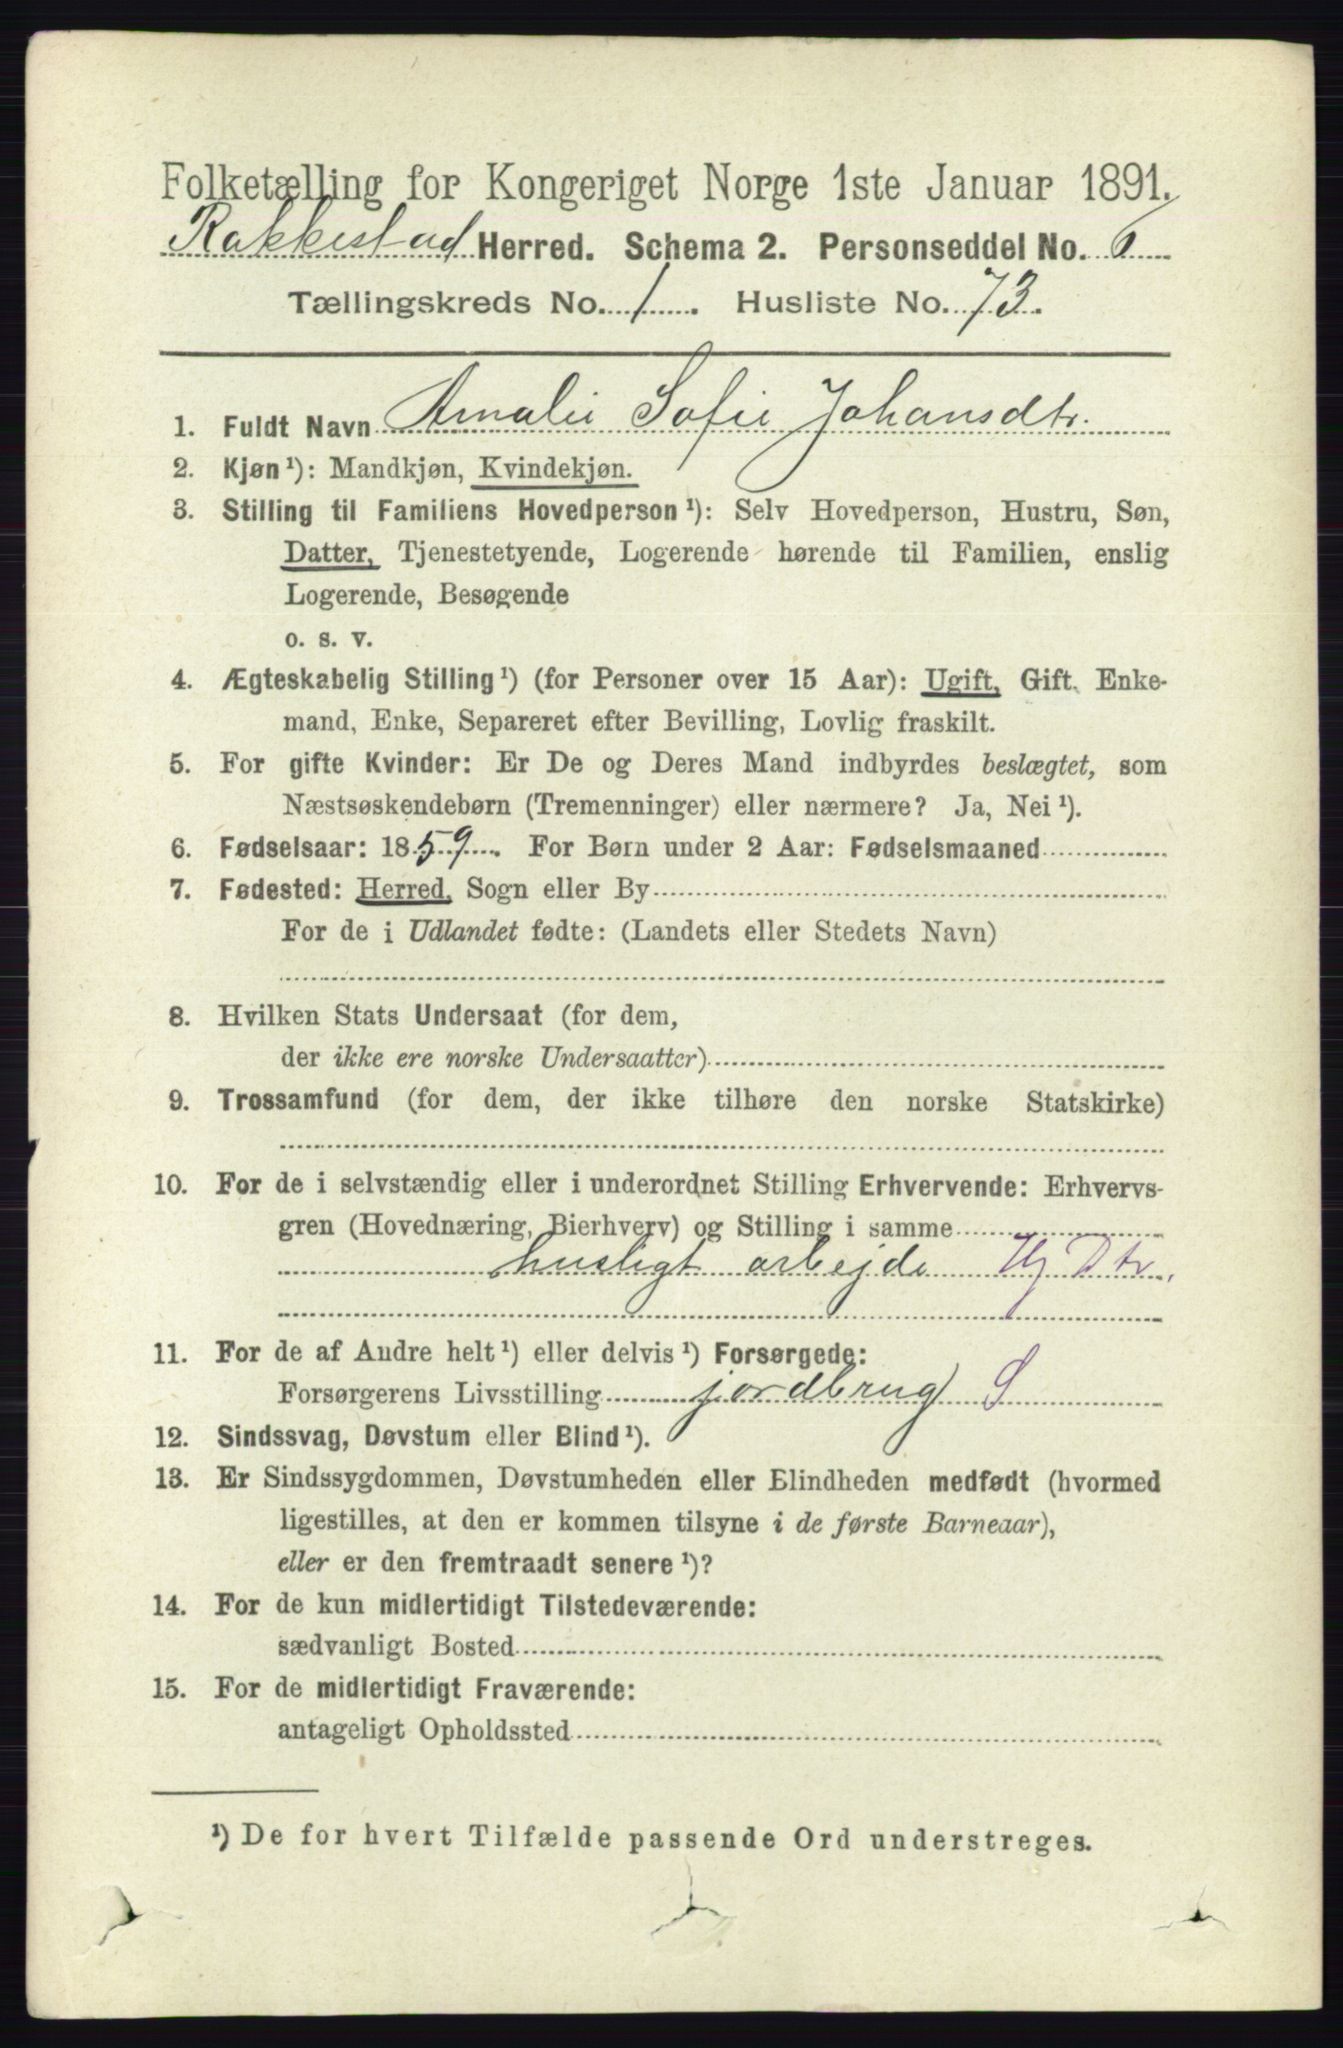 Folketælling for Kongeriget Norge 1ste Januar 1891.
Rakkestad Herred. Schema 2. Personseddel No. 6
Tællingskreds No. 1. Husliste No. 73.
1. Fuldt Navn Amalie Sofie Johansdtr.
2. Kjøn ¹): Mandkjøn, Kvindekjøn.
3. Stilling til Familiens Hovedperson ¹): Selv Hovedperson, Hustru, Søn,
Datter, Tjenestetyende, Logerende hørende til Familien, enslig
Logerende, Besøgende
o. s. v.
4. Ægteskabelig Stilling ¹) (for Personer over 15 Aar): Ugift, Gift, Enke-
mand, Enke, Separeret efter Bevilling, Lovlig fraskilt.
5. For gifte Kvinder: Er De og Deres Mand indbyrdes beslægtet, som
Næstsøskendebørn (Tremenninger) eller nærmere? Ja, Nei ¹).
6. Fødselsaar: 1859. For Børn under 2 Aar: Fødselsmaaned
7. Fødested: Herred, Sogn eller By
For de i Udlandet fødte: (Landets eller Stedets Navn)
8. Hvilken Stats Undersaat (for dem,
der ikke ere norske Undersaatter)
9. Trossamfund (for dem, der ikke tilhøre den norske Statskirke)
10. For de i selvstændig eller i underordnet Stilling Erhvervende: Erhvervs-
gren (Hovednæring, Bierhverv) og Stilling i samme
husligt arbejde Hj Dtr.
11. For de af Andre helt ¹) eller delvis ¹) Forsørgede:
Forsørgerens Livsstilling jordbrug S
12. Sindssvag, Døvstum eller Blind ¹).
13. Er Sindssygdommen, Døvstumheden eller Blindheden medfødt (hvormed
ligestilles, at den er kommen tilsyne i de første Barneaar),
eller er den fremtraadt senere ¹)?
14. For de kun midlertidigt Tilstedeværende:
sædvanligt Bosted
15. For de midlertidigt Fraværende:
antageligt Opholdssted
¹) De for hvert Tilfælde passende Ord understreges.